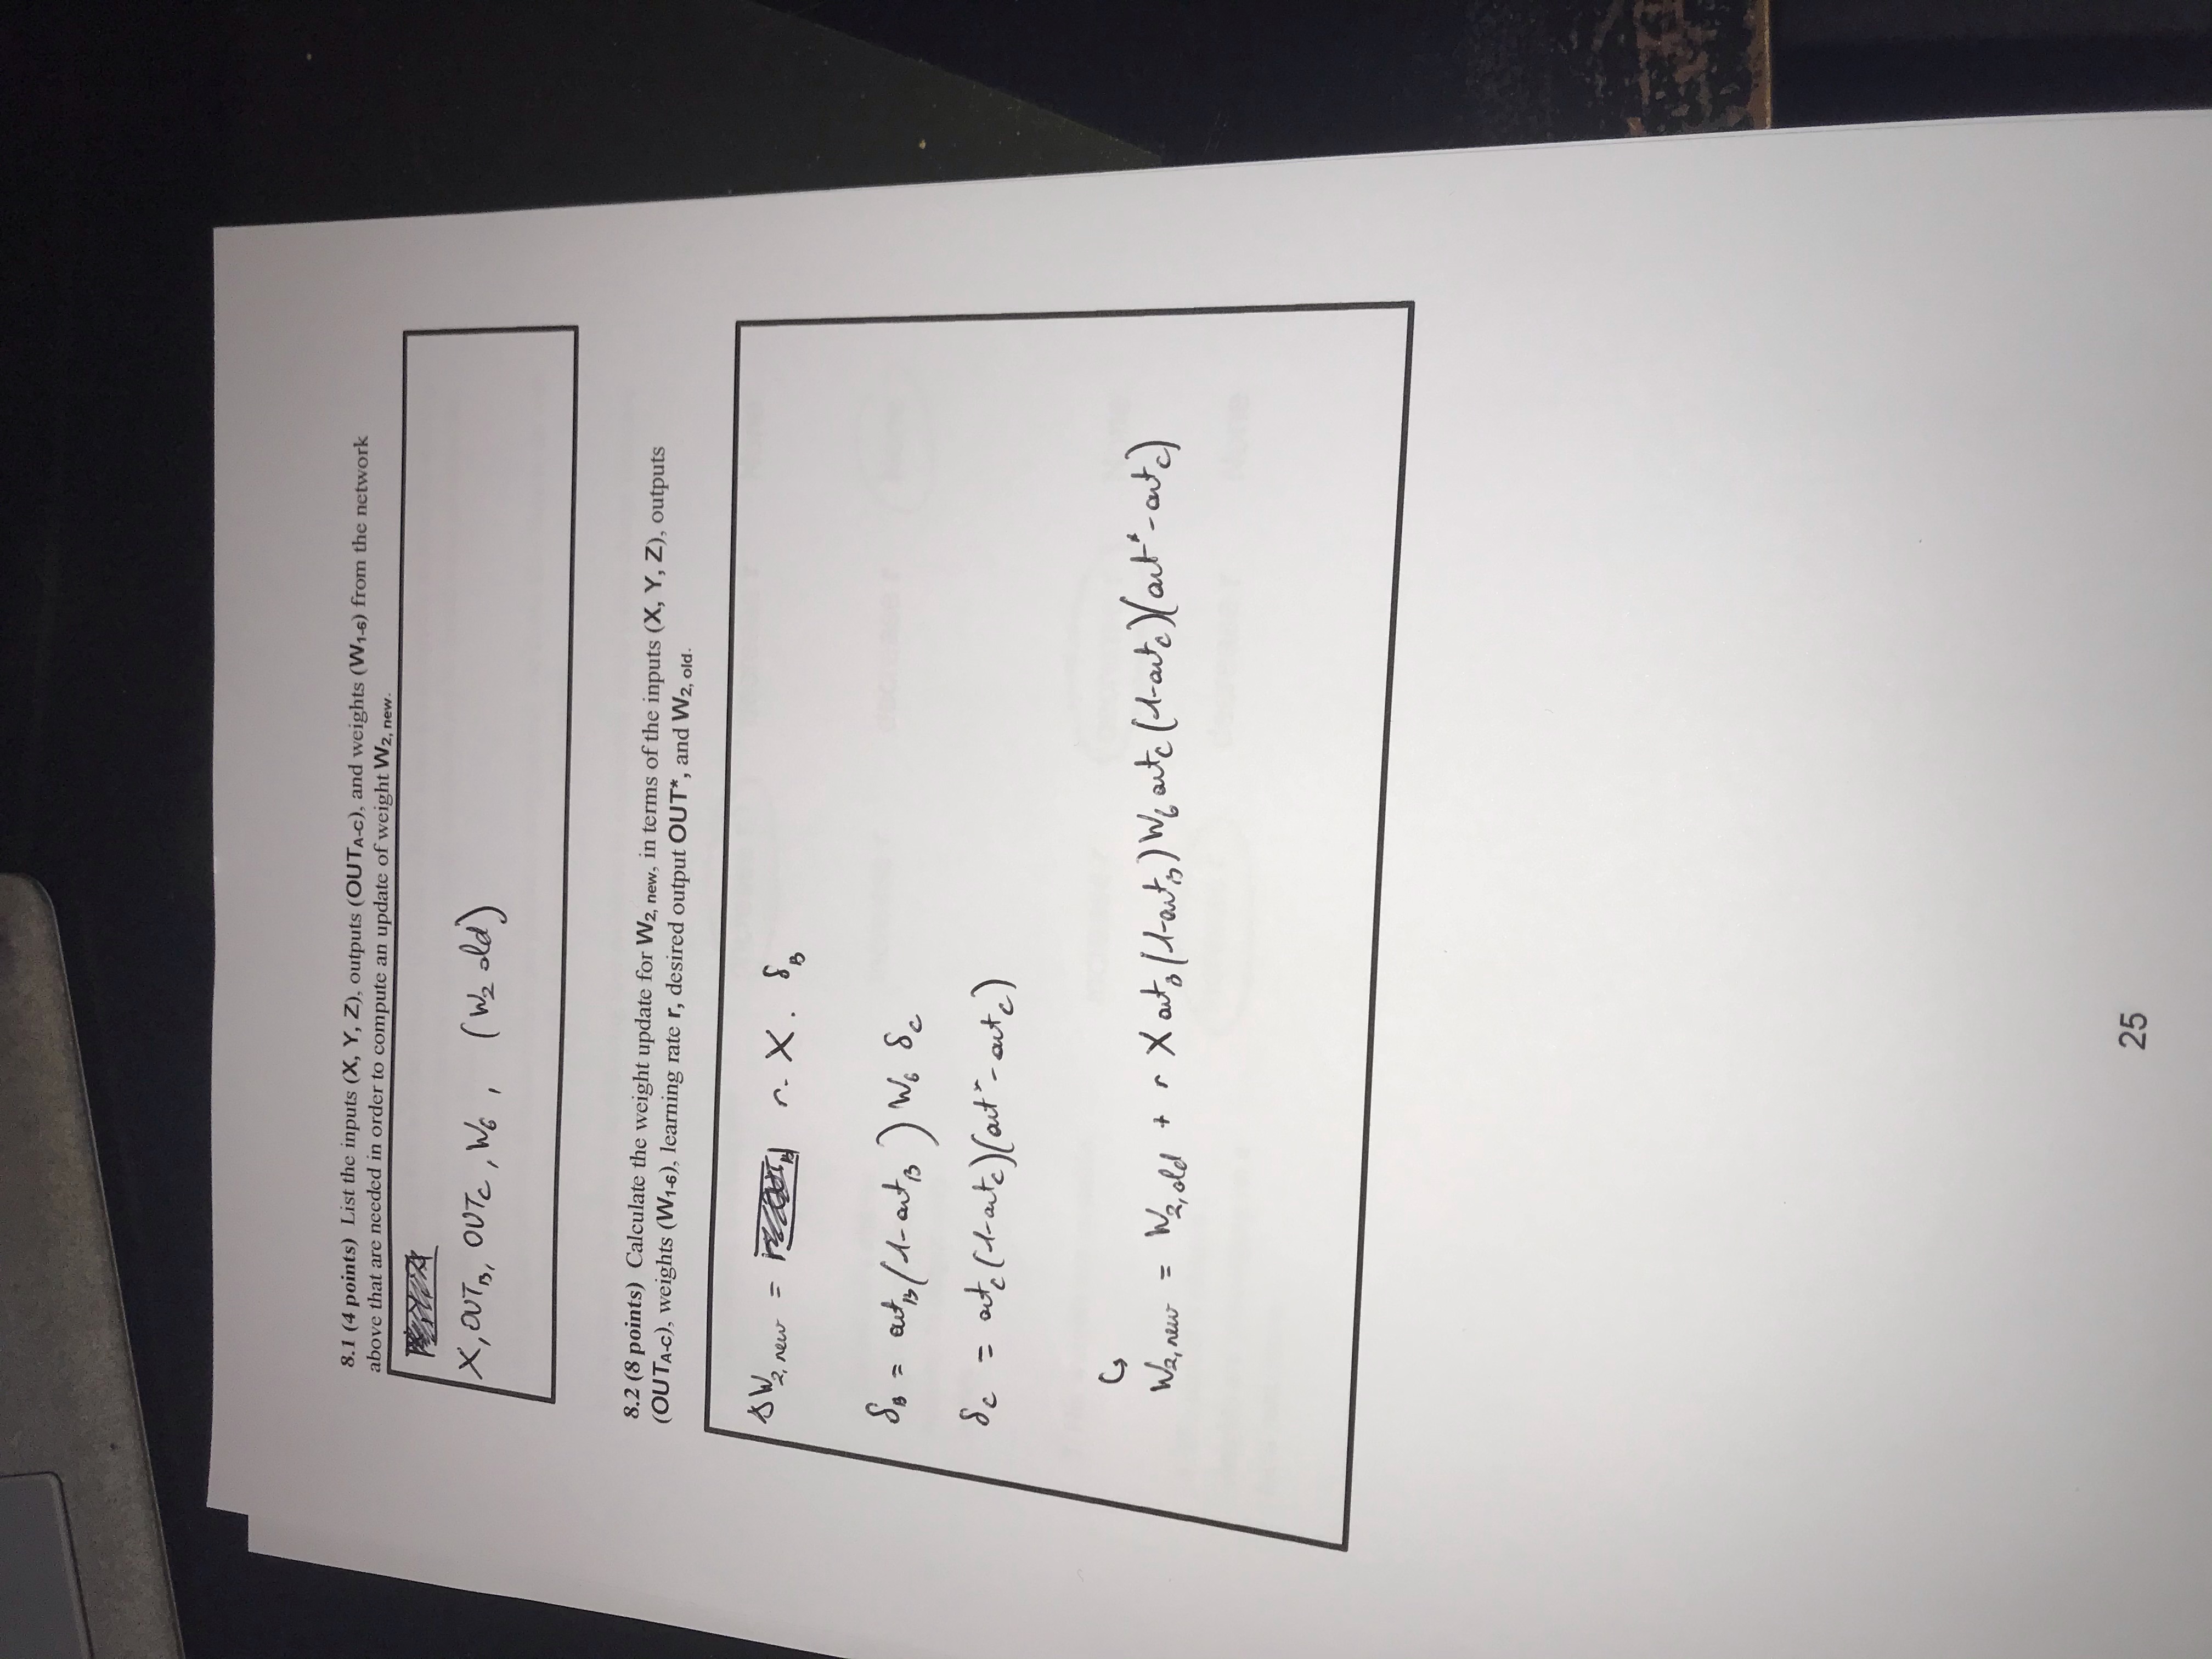 8.1 (4 points) List the inputs (X, Y, Z), outputs (OUTA-C), and weights (W1-6) from the network
above that are needed in order to compute an update of weight W2, new.
X, OUTB, OUTC, W6, (W2 old)
8.2 (8 points) Calculate the weight update for W2, new, in terms of the inputs (X, Y, Z), outputs
(OUTA-C), weights (W1-6), learning rate r, desired output OUT*, and W2, old.
ΔW2, new = r. X. δB
δB = outB (1-outB) W6 δC
δC = outC (1-outC)(out*-outC)
↳
W2, new = W2, old + r X outB (1-outB) W6 outC (1-outC)(out*-outC)
25